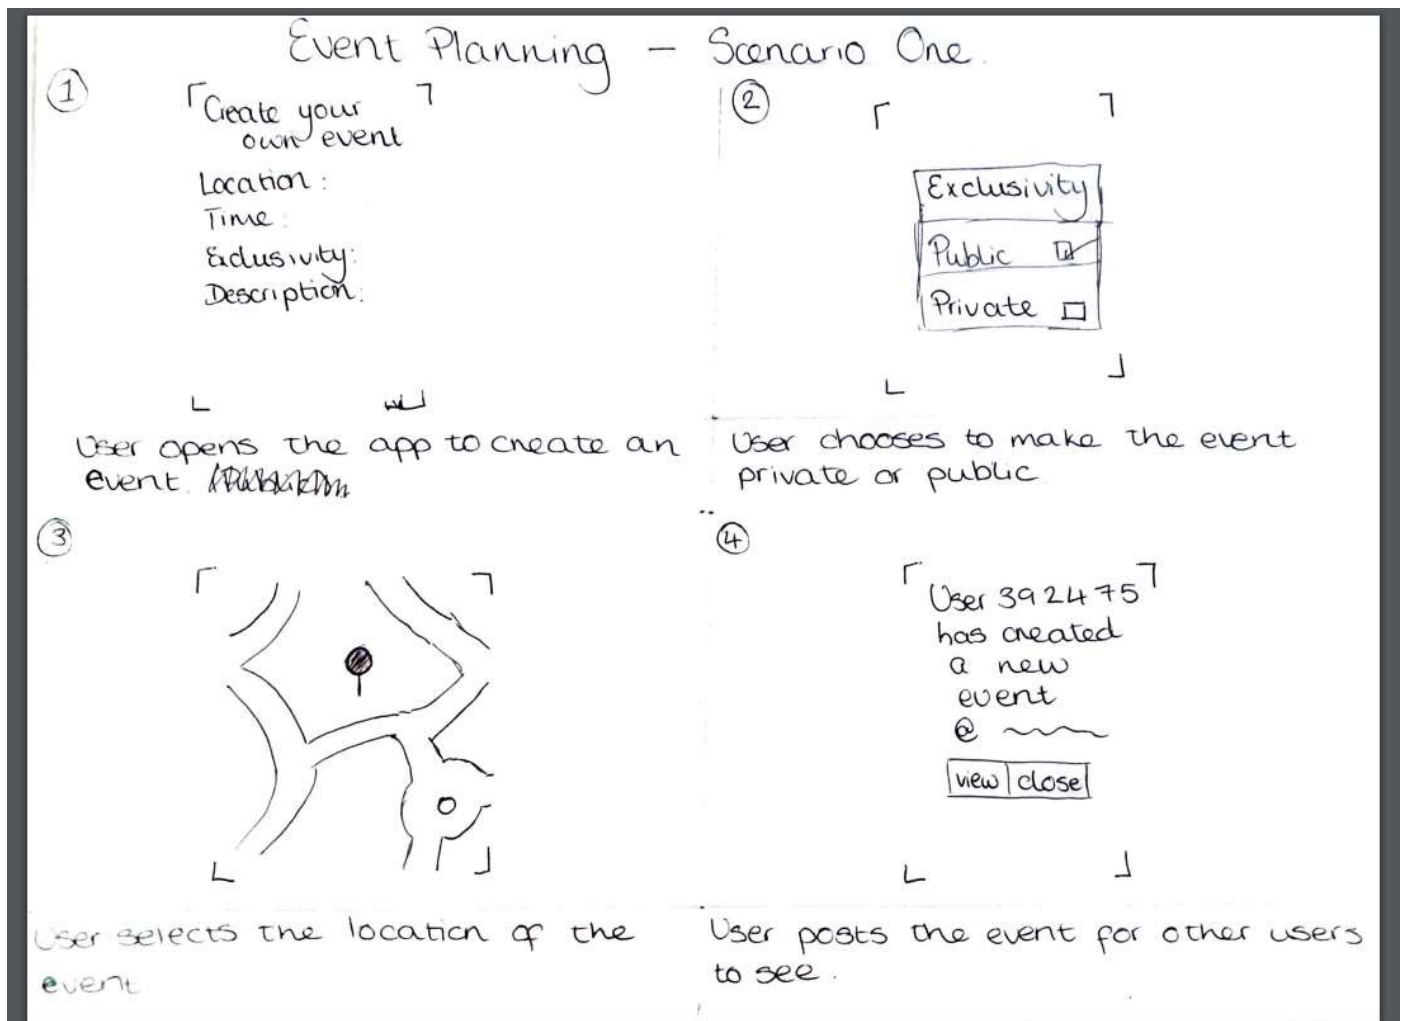 Event Planning – Scenario One.
1
Create your
own event
Location :
Time :
Exclusivity:
Description:
User opens the app to create an
event.
2
Exclusivity
Public
Private
User chooses to make the event
private or public
3
User selects the location of the
event
4
User 392475
has created
a new
event
@
view close
User posts the event for other users
to see.